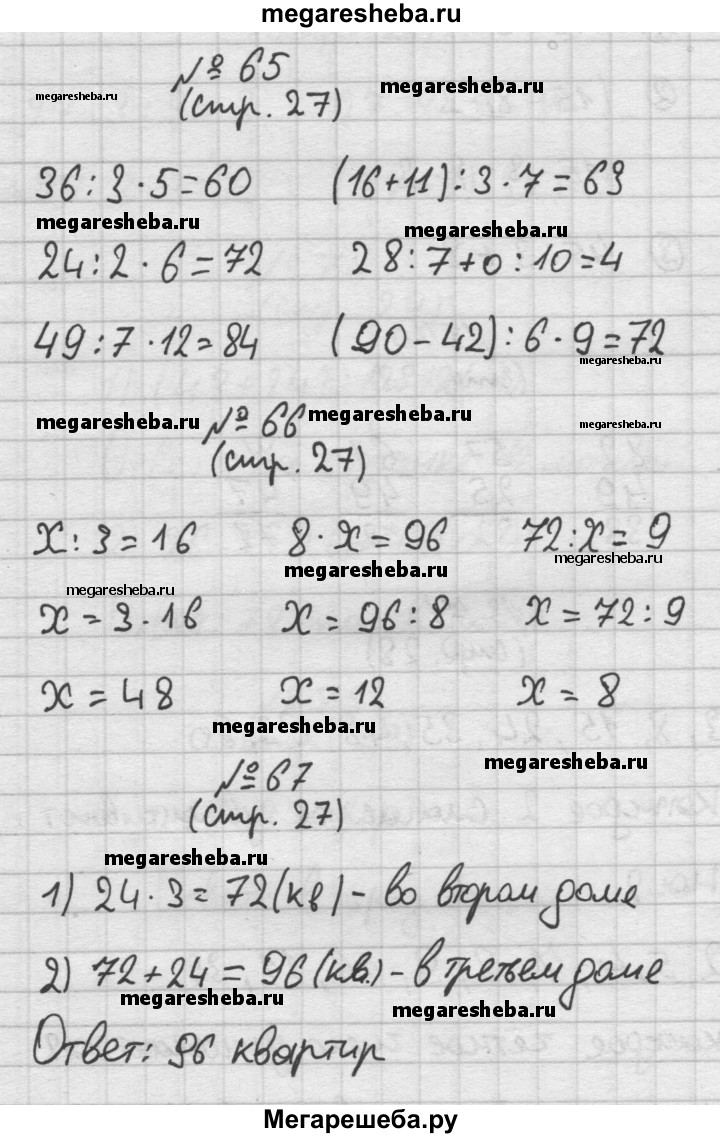 megaresheba.ru
№ 65
megaresheba.ru
megaresheba.ru
(стр. 27)
36 : 3 · 5 = 60 (16 + 11) : 3 · 7 = 63
megaresheba.ru megaresheba.ru
24 : 2 · 6 = 72 28 : 7 + 0 : 10 = 4
49 : 7 · 12 = 84 (90 - 42) : 6 · 9 = 72
megaresheba.ru
№ 66
megaresheba.ru megaresheba.ru megaresheba.ru
(стр. 27)
x : 3 = 16 8 · x = 96 72 : x = 9
megaresheba.ru megaresheba.ru megaresheba.ru
x = 3 · 16 x = 96 : 8 x = 72 : 9
x = 48 x = 12 x = 8
megaresheba.ru
№ 67
megaresheba.ru
(стр. 27)
megaresheba.ru
1) 24 · 3 = 72 (кв) - во втором доме
2) 72 + 24 = 96 (кв.) - в третьем доме
megaresheba.ru megaresheba.ru
Ответ: 96 квартир
Мегарешеба.ру